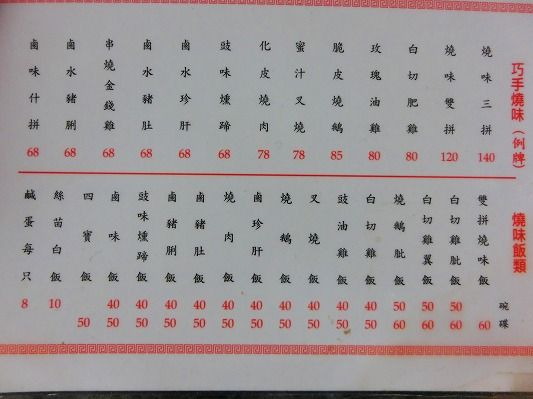 巧手燒味(例牌)
燒味三拼 140
燒味雙拼 120
白切肥雞 80
玫瑰油雞 80
脆皮燒鵝 85
蜜汁叉燒 78
化皮燒肉 78
豉味燻蹄 68
鹵水珍肝 68
鹵水豬肚 68
串燒金錢雞 68
鹵水豬脷 68
鹵味什拼 68
燒味飯類
碗 碟
雙拼燒味飯 60
白切雞肶飯 50 60
白切雞翼飯 50 60
燒鵝肶飯 50 60
白切雞飯 40 50
豉油雞飯 40 50
叉燒飯 40 50
燒鵝飯 40 50
鹵珍肝飯 40 50
燒肉飯 40 50
鹵豬肚飯 40 50
鹵豬脷飯 40 50
豉味燻蹄飯 40 50
鹵味飯 40 50
四寶飯 50
絲苗白飯 10
鹹蛋每只 8